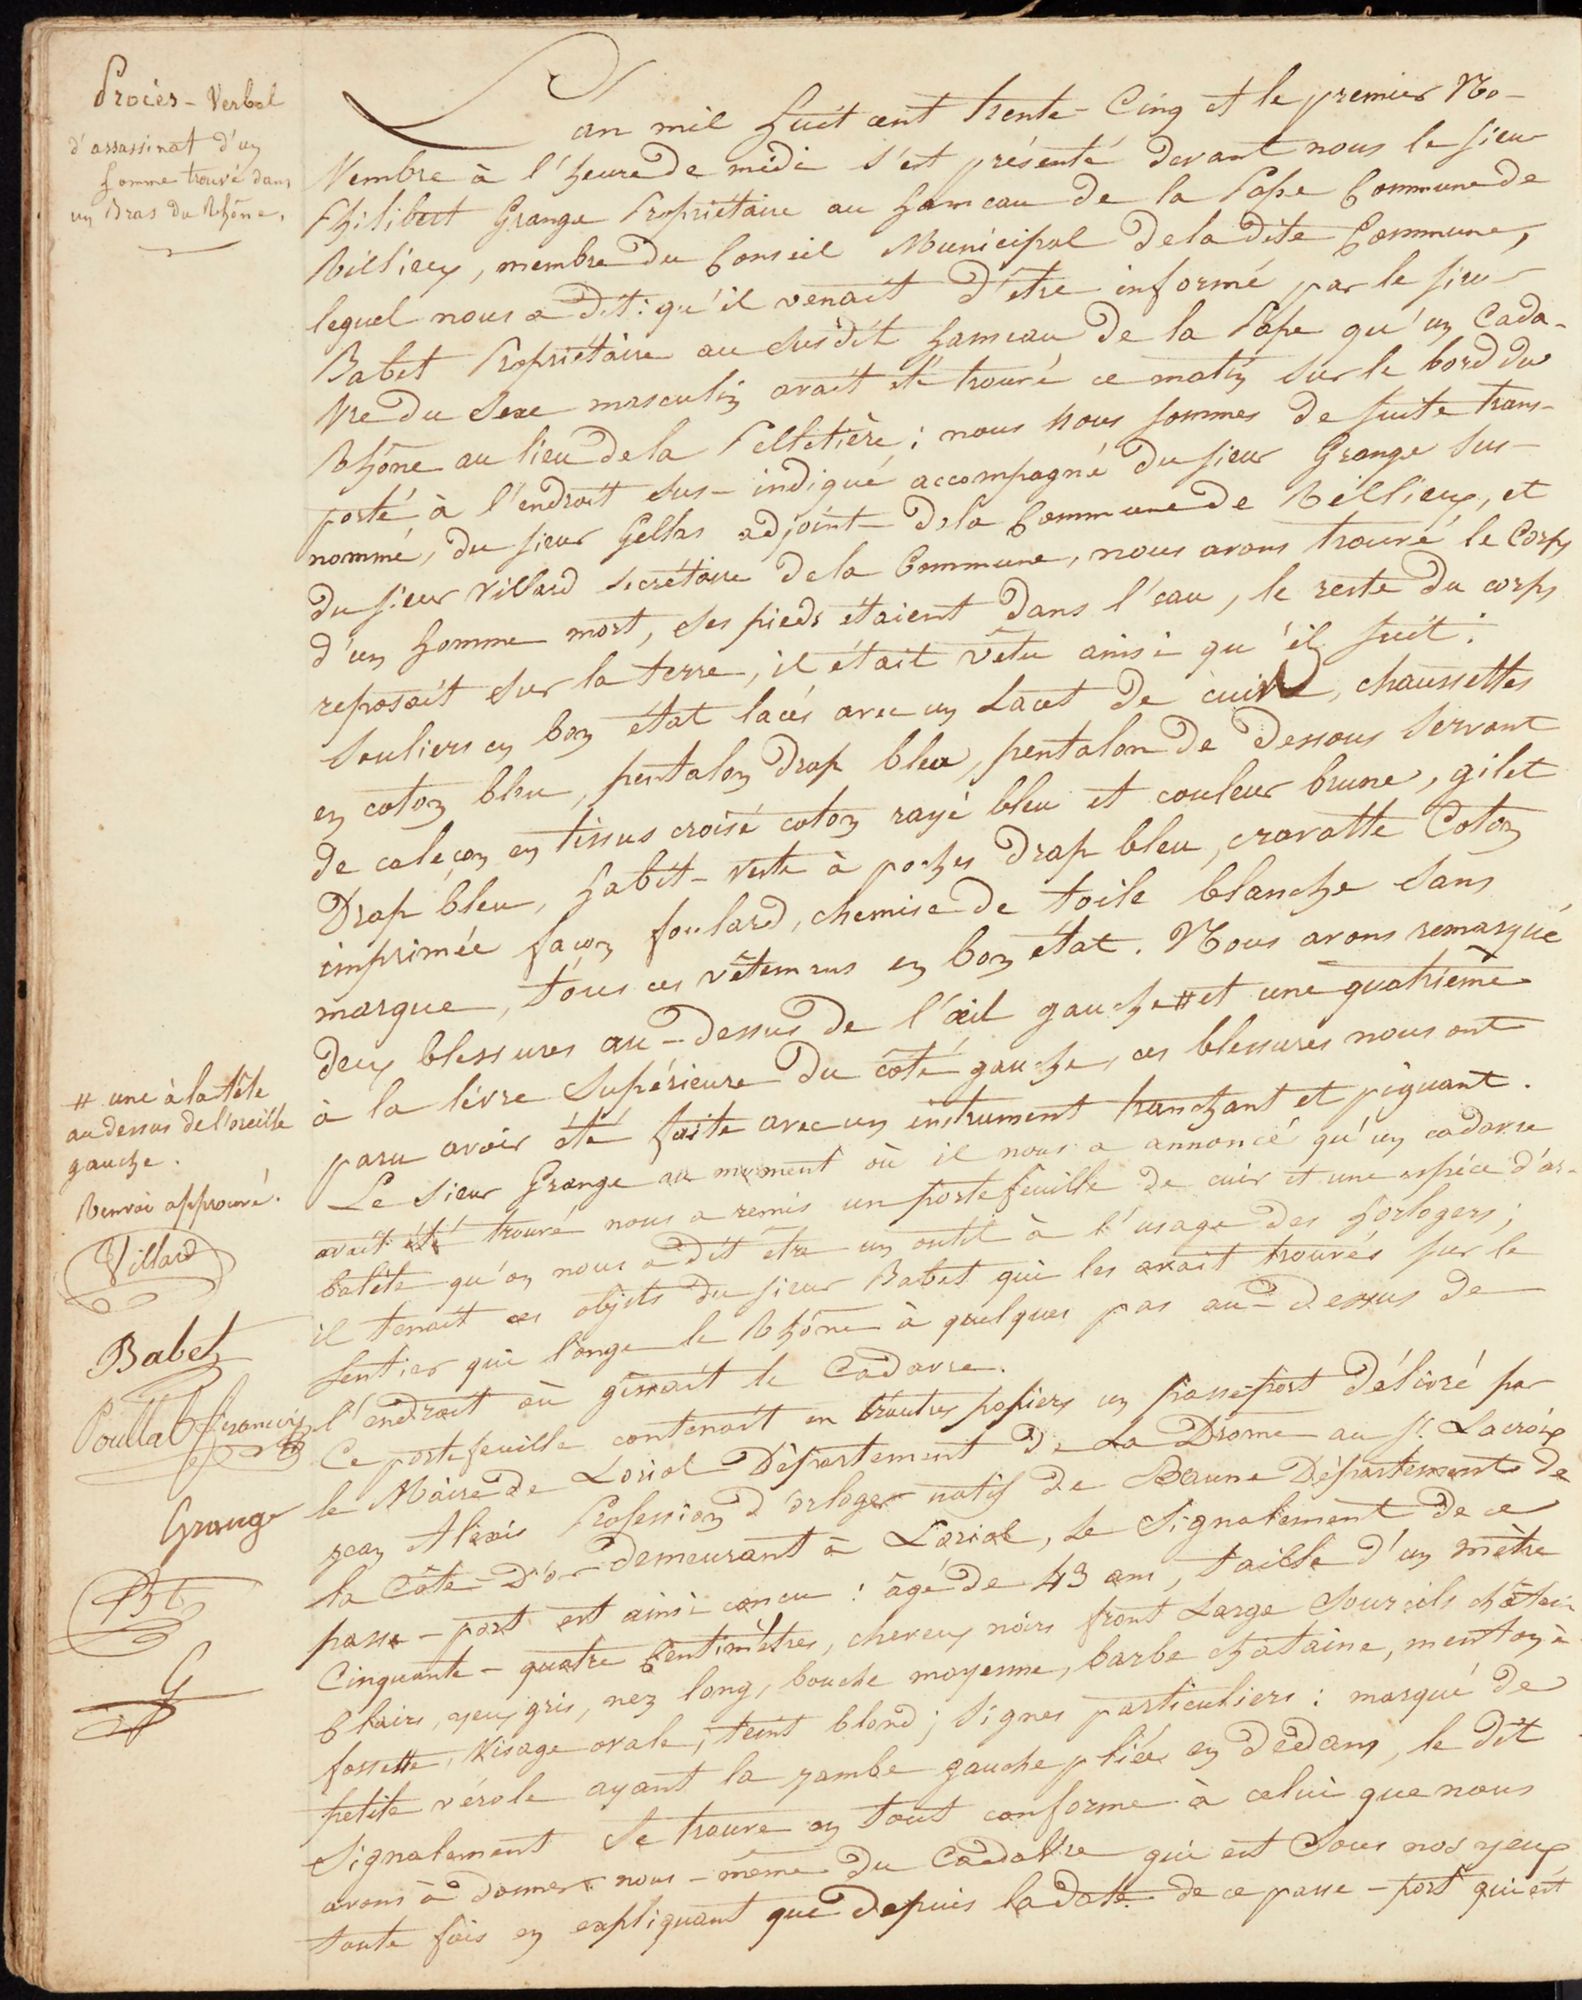 Procès-Verbal
d'assassinat d'un
homme trouvé dans
un Bras du Rhône.
L'an mil huit cent trente-Cinq et le premier No-
Vembre à l'heure de midi s'est présenté devant nous le sieur
Philibert Grange Propriétaire au hameau de la Pape Commune de
Rillieux, membre du Conseil Municipal de la dite Commune,
lequel nous a dit: qu'il venait d'être informé par le sieur
Babet Propriétaire au susdit hameau de la Pape qu'un Cada-
Vre du sexe masculin avait été trouvé ce matin sur le bord du
Rhône au lieu de la Pelletière; nous nous sommes de suite trans-
porté à l'endroit sus-indiqué accompagné du sieur Grange sus-
nommé, du sieur Gellas adjoint de la Commune de Rillieux, et
du sieur Villard secrétaire de la Commune, nous avons trouvé le Corps
d'un homme mort, ses pieds étaient dans l'eau, le reste du corps
reposait sur la terre, il était vêtu ainsi qu'il suit:
Souliers en bon état lacés avec un Lacet de cuir, chaussettes
en coton bleu, pentalon drap bleu, pentalon de dessous servant
de caleçon en tissus croisé coton rayé bleu et couleur brune, gilet
Drap bleu, habit-veste à poches drap bleu, cravatte Coton
imprimée façon foulard, chemise de toile blanche sans
marque, tous ces vêtemens en bon état. Nous avons remarqué
deux blessures au-dessus de l'œil gauche # et une quatrième
à la lèvre supérieure du côté gauche, ces blessures nous ont
paru avoir été faite avec un instrument tranchant et piquant.
Le sieur Grange au moment où il nous a annoncé qu'un cadavre
avait été trouvé nous a remis un portefeuille de cuir et une espèce d'ar-
balète qu'on nous a dit être un outil à l'usage des horlogers;
il tenait ces objets du sieur Babet qui les avait trouvés sur le
sentier qui longe le Rhône à quelques pas au-dessus de
l'endroit où gissait le Cadavre.
Ce portefeuille contenait en d'autres papiers un passe-port délivré par
le Maire de Loriol Département de La Drome au Sr. Lacroix
jean Alexis Profession d'orloger natif de Beaune Département de
la Côte-D'or demeurant à Loriol, Le Signalement de ce
passe-port est ainsi concu: âgé de 43 ans, taille d'un mètre
Cinquante-quatre Centimètres, cheveux noirs front Large Sourcils châtain
Clairs, yeux gris, nez long, bouche moyenne, barbe châtaine, menton à
fossette, Visage ovale, teint blond; Signes particuliers: marqué de
petite vérole ayant la jambe gauche pliée en dedans, le dit
Signalement se trouve en tout conforme à celui que nous
avons à donner nous-même du Cadavre qui est sous nos yeux
toute fois en expliquant que depuis la date de ce passe-port qui est
# une à la tête
au dessus de l'oreille
gauche.
Renvoi approuvé.
Villard
Babet
Poullat francois
Grange
G